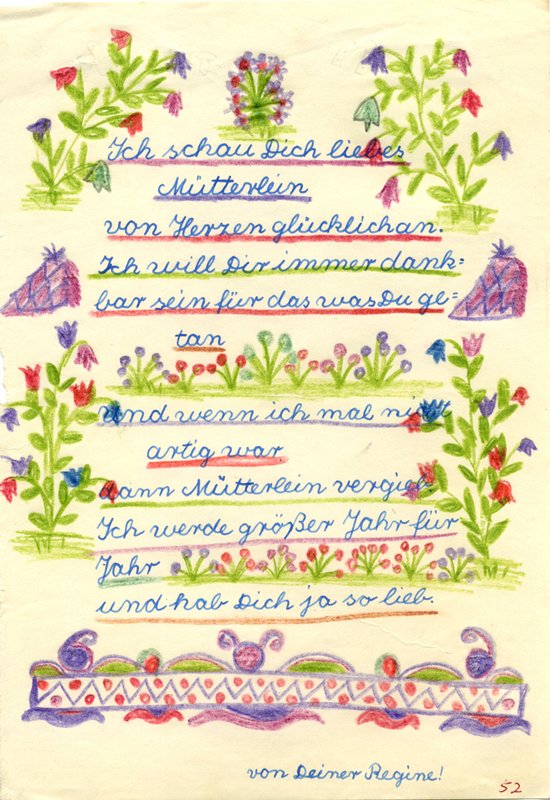 Ich schau Dich liebes
Mütterlein
von Herzen glücklich an.
Ich will Dir immer dank=
bar sein für das was Du ge=
tan
und wenn ich mal nicht
artig war
dann Mütterlein vergieb.
Ich werde größer Jahr für
Jahr
und hab Dich ja so lieb.
von Deiner Regine!
52